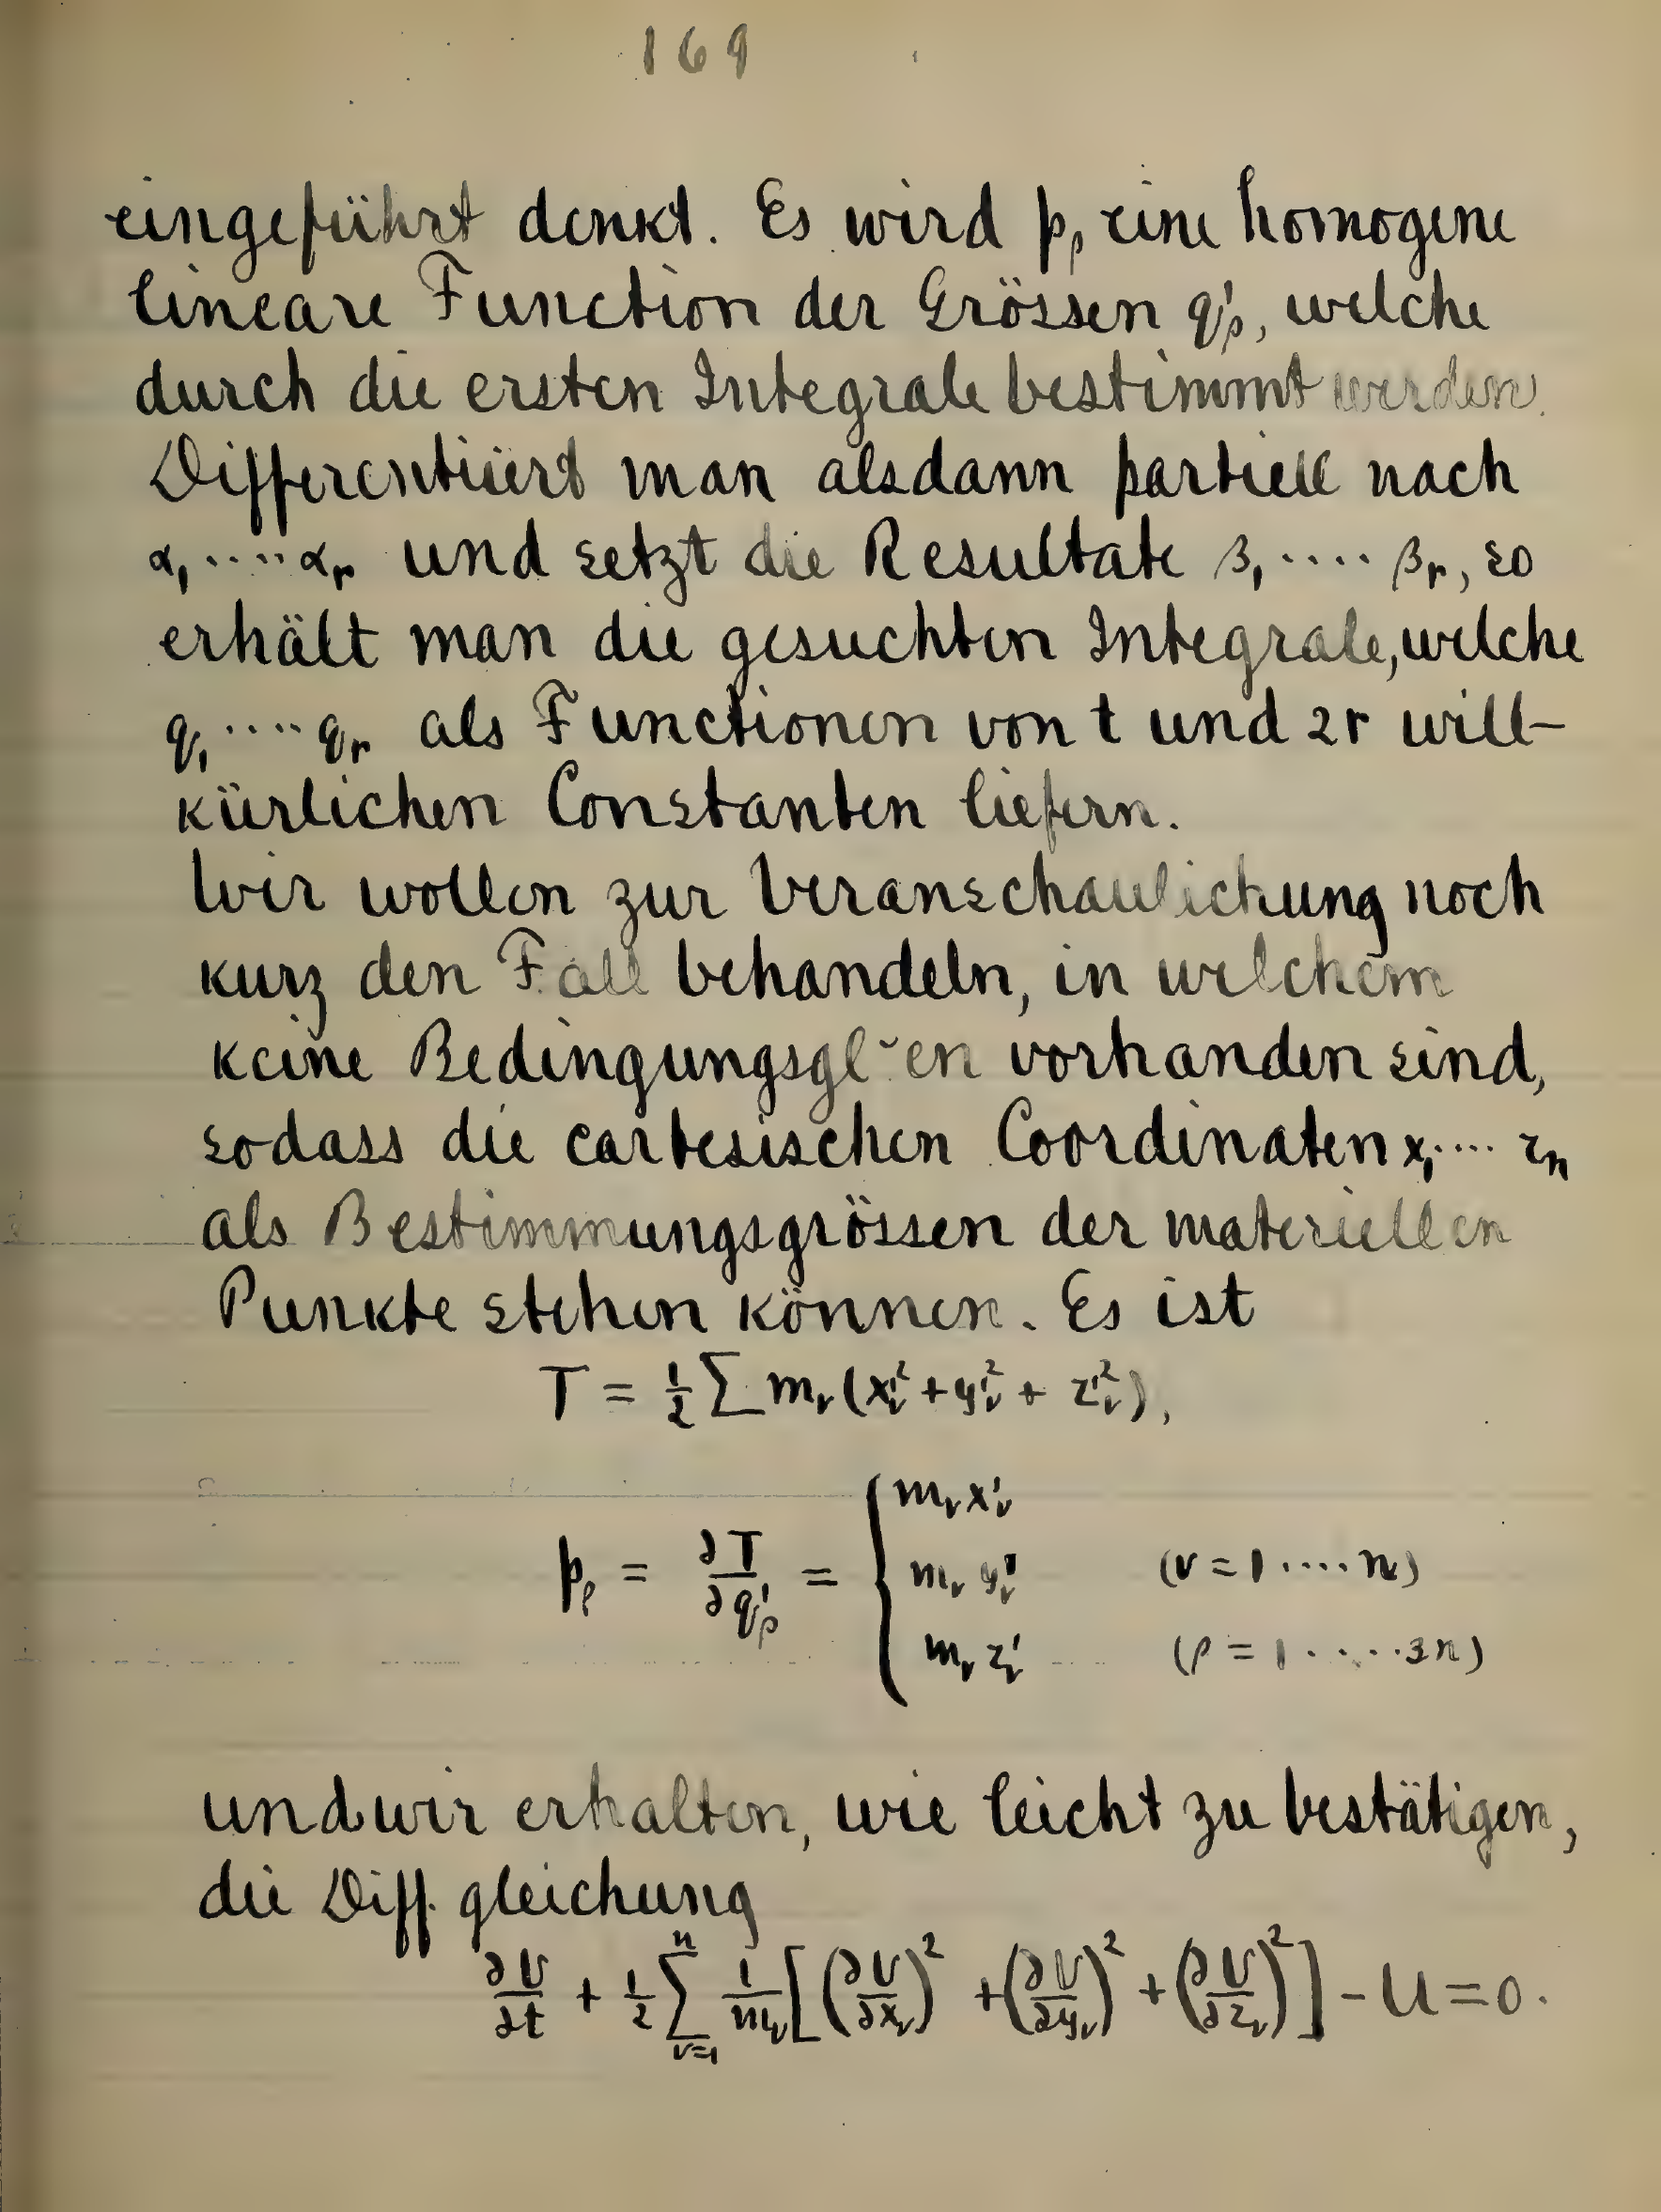 169
eingeführt denkt. Es wird pₚ eine homogene
lineare Function der Grössen q'ᵨ, welche
durch die ersten Integrale bestimmt werden.
Differentiiert man alsdann partiell nach
α₁ ..... αᵣ und setzt die Resultate β₁ .... βᵣ, so
erhält man die gesuchten Integrale, welche
q₁ .... qᵣ als Functionen von t und 2r will-
kürlichen Constanten liefern.
Wir wollen zur Veranschaulichung noch
kurz den Fall behandeln, in welchem
keine Bedingungsgl~en vorhanden sind,
sodass die cartesischen Coordinaten x₁ .... zₙ
als Bestimmungsgrössen der materiellen
Punkte stehen können. Es ist
T = ½ ∑ mᵥ (x'ᵥ² + y'ᵥ² + z'ᵥ²),
pᵨ = ∂T/∂q'ᵨ = { mᵥ x'ᵥ
mᵥ y'ᵥ (ν = 1 .... n)
mᵥ z'ᵥ (ρ = 1 ..... 3n)
und wir erhalten, wie leicht zu bestätigen,
die Diff. gleichung
∂V/∂t + ½ ∑ᵥ₌₁ⁿ 1/mᵥ [(∂V/∂xᵥ)² + (∂V/∂yᵥ)² + (∂V/∂zᵥ)²] - U = 0.